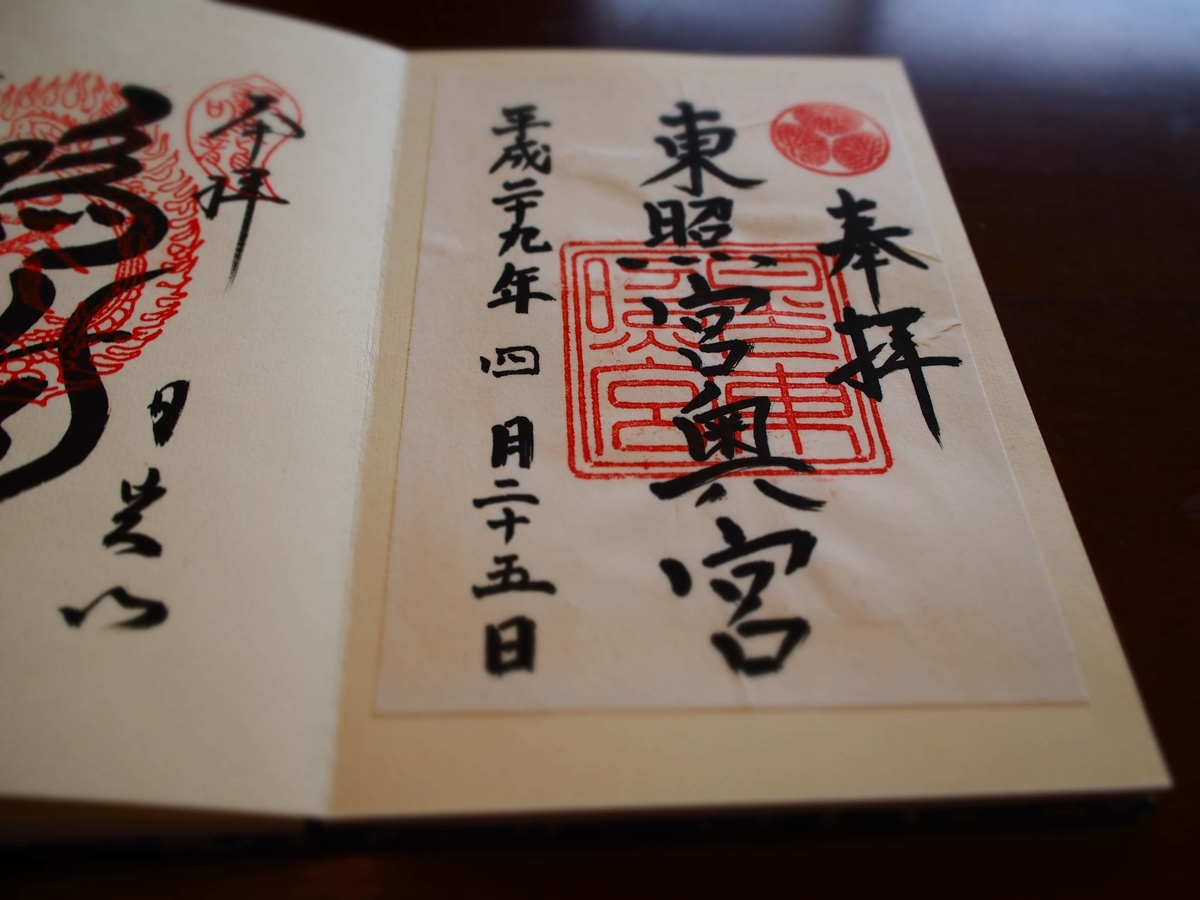 奉拝
東照宮奥宮
平成二十九年四月二十五日
奉拝
日光山